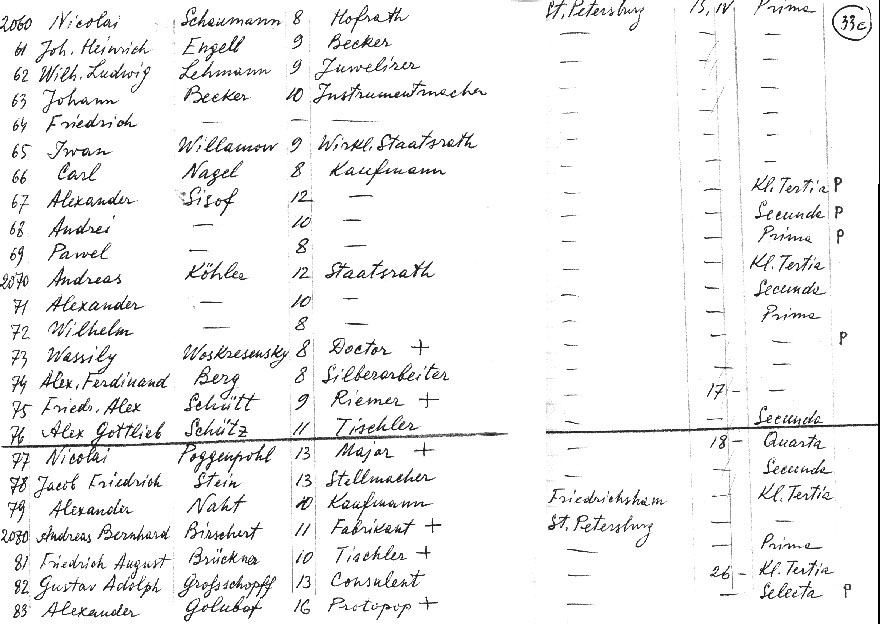 2060 Nicolai Schaumann 8 Hofrath St. Petersburg 15, IV Prima 33c
61 Joh. Heinrich Engell 9 Becker — — —
62 Wilh. Ludwig Lehmann 9 Juwelirer — — —
63 Johann Becker 10 Instrumentmacher — — —
64 Friedrich — — — — — —
65 Iwan Willamow 9 Wirkl. Staatsrath — — —
66 Carl Nagel 8 Kaufmann — — —
67 Alexander Sisof 12 — — — Kl. Tertia P
68 Andrei — 10 — — — Secunda P
69 Pawel — 8 — — — Prima P
2070 Andreas Köhler 12 Staatsrath — — Kl. Tertia
71 Alexander — 10 — — — Secunda
72 Wilhelm — 8 — — — Prima
73 Wassily Woskresensky 8 Doctor + — — — P
74 Alex. Ferdinand Berg 8 Silberarbeiter — — —
75 Friedr. Alex Schütt 9 Riemer + — 17 - —
76 Alex Gottlieb Schütz 11 Tischler — — Secunda
77 Nicolai Poggenpohl 13 Major + — 18 - Quarta
78 Jacob Friedrich Stein 13 Stellmacher — — Secunda
79 Alexander Naht 10 Kaufmann Friedrichsham — Kl. Tertia
2080 Andreas Bernhard Birschert 11 Fabrikant + St. Petersburg — —
81 Friedrich August Brückner 10 Tischler + — — Prima
82 Gustav Adolph Grofsschopff 13 Consulent — 26 - Kl. Tertia
83 Alexander Golubof 16 Protopop + — — Selecta P